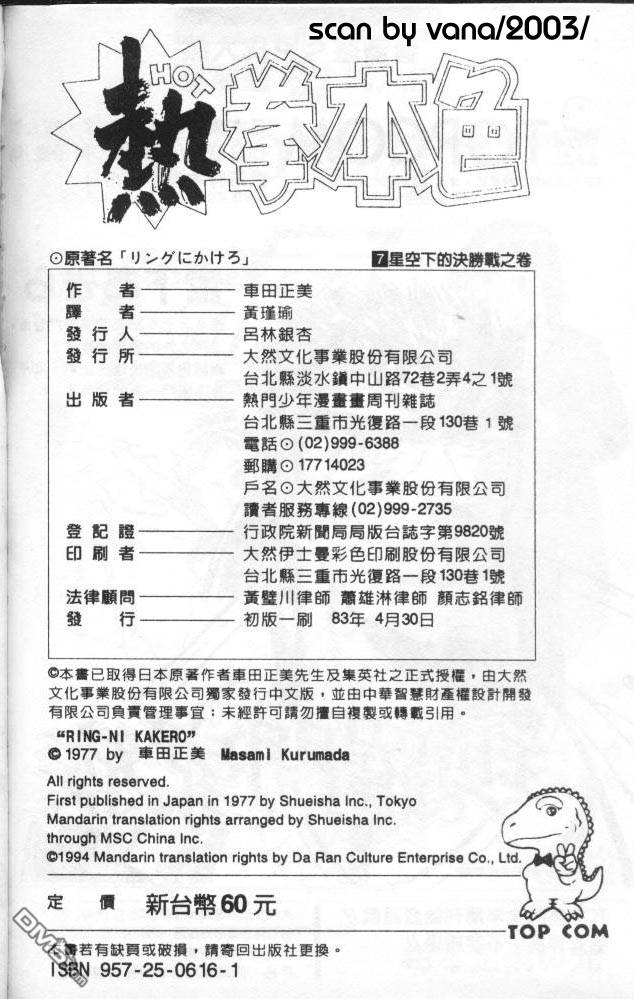 scan by vana/2003/
熱拳本色
HOT
⊙原著名「リングにかけろ」
7星空下的決勝戰之卷
作者 車田正美
譯者 黃瑾瑜
發行人 呂林銀杏
發行所 大然文化事業股份有限公司
台北縣淡水鎮中山路72巷2弄4之1號
出版者 熱門少年漫畫畫周刊雜誌
台北縣三重市光復路一段130巷1號
電話⊙(02)999-6388
郵購⊙17714023
戶名⊙大然文化事業股份有限公司
讀者服務專線(02)999-2735
登記證 行政院新聞局局版台誌字第9820號
印刷者 大然伊士曼彩色印刷股份有限公司
台北縣三重市光復路一段130巷1號
法律顧問 黃璧川律師 蕭雄淋律師 顏志銘律師
發行 初版一刷 83年 4月30日
©本書已取得日本原著作者車田正美先生及集英社之正式授權，由大然
文化事業股份有限公司獨家發行中文版，並由中華智慧財產權設計開發
有限公司負責管理事宜；未經許可請勿擅自複製或轉載引用。
“RING-NI KAKERO”
© 1977 by 車田正美 Masami Kurumada
All rights reserved.
First published in Japan in 1977 by Shueisha Inc., Tokyo
Mandarin translation rights arranged by Shueisha Inc.
through MSC China Inc.
©1994 Mandarin translation rights by Da Ran Culture Enterprise Co., Ltd.
定價 新台幣60元
TOP COM
書若有缺頁或破損，請寄回出版社更換。
ISBN 957-25-0616-1